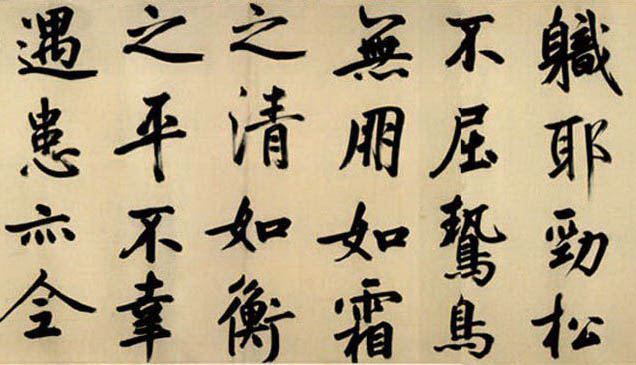 軄耶勁松
不屈鷙鳥
無朋如霜
之清如衡
之平不幸
遇患亦全